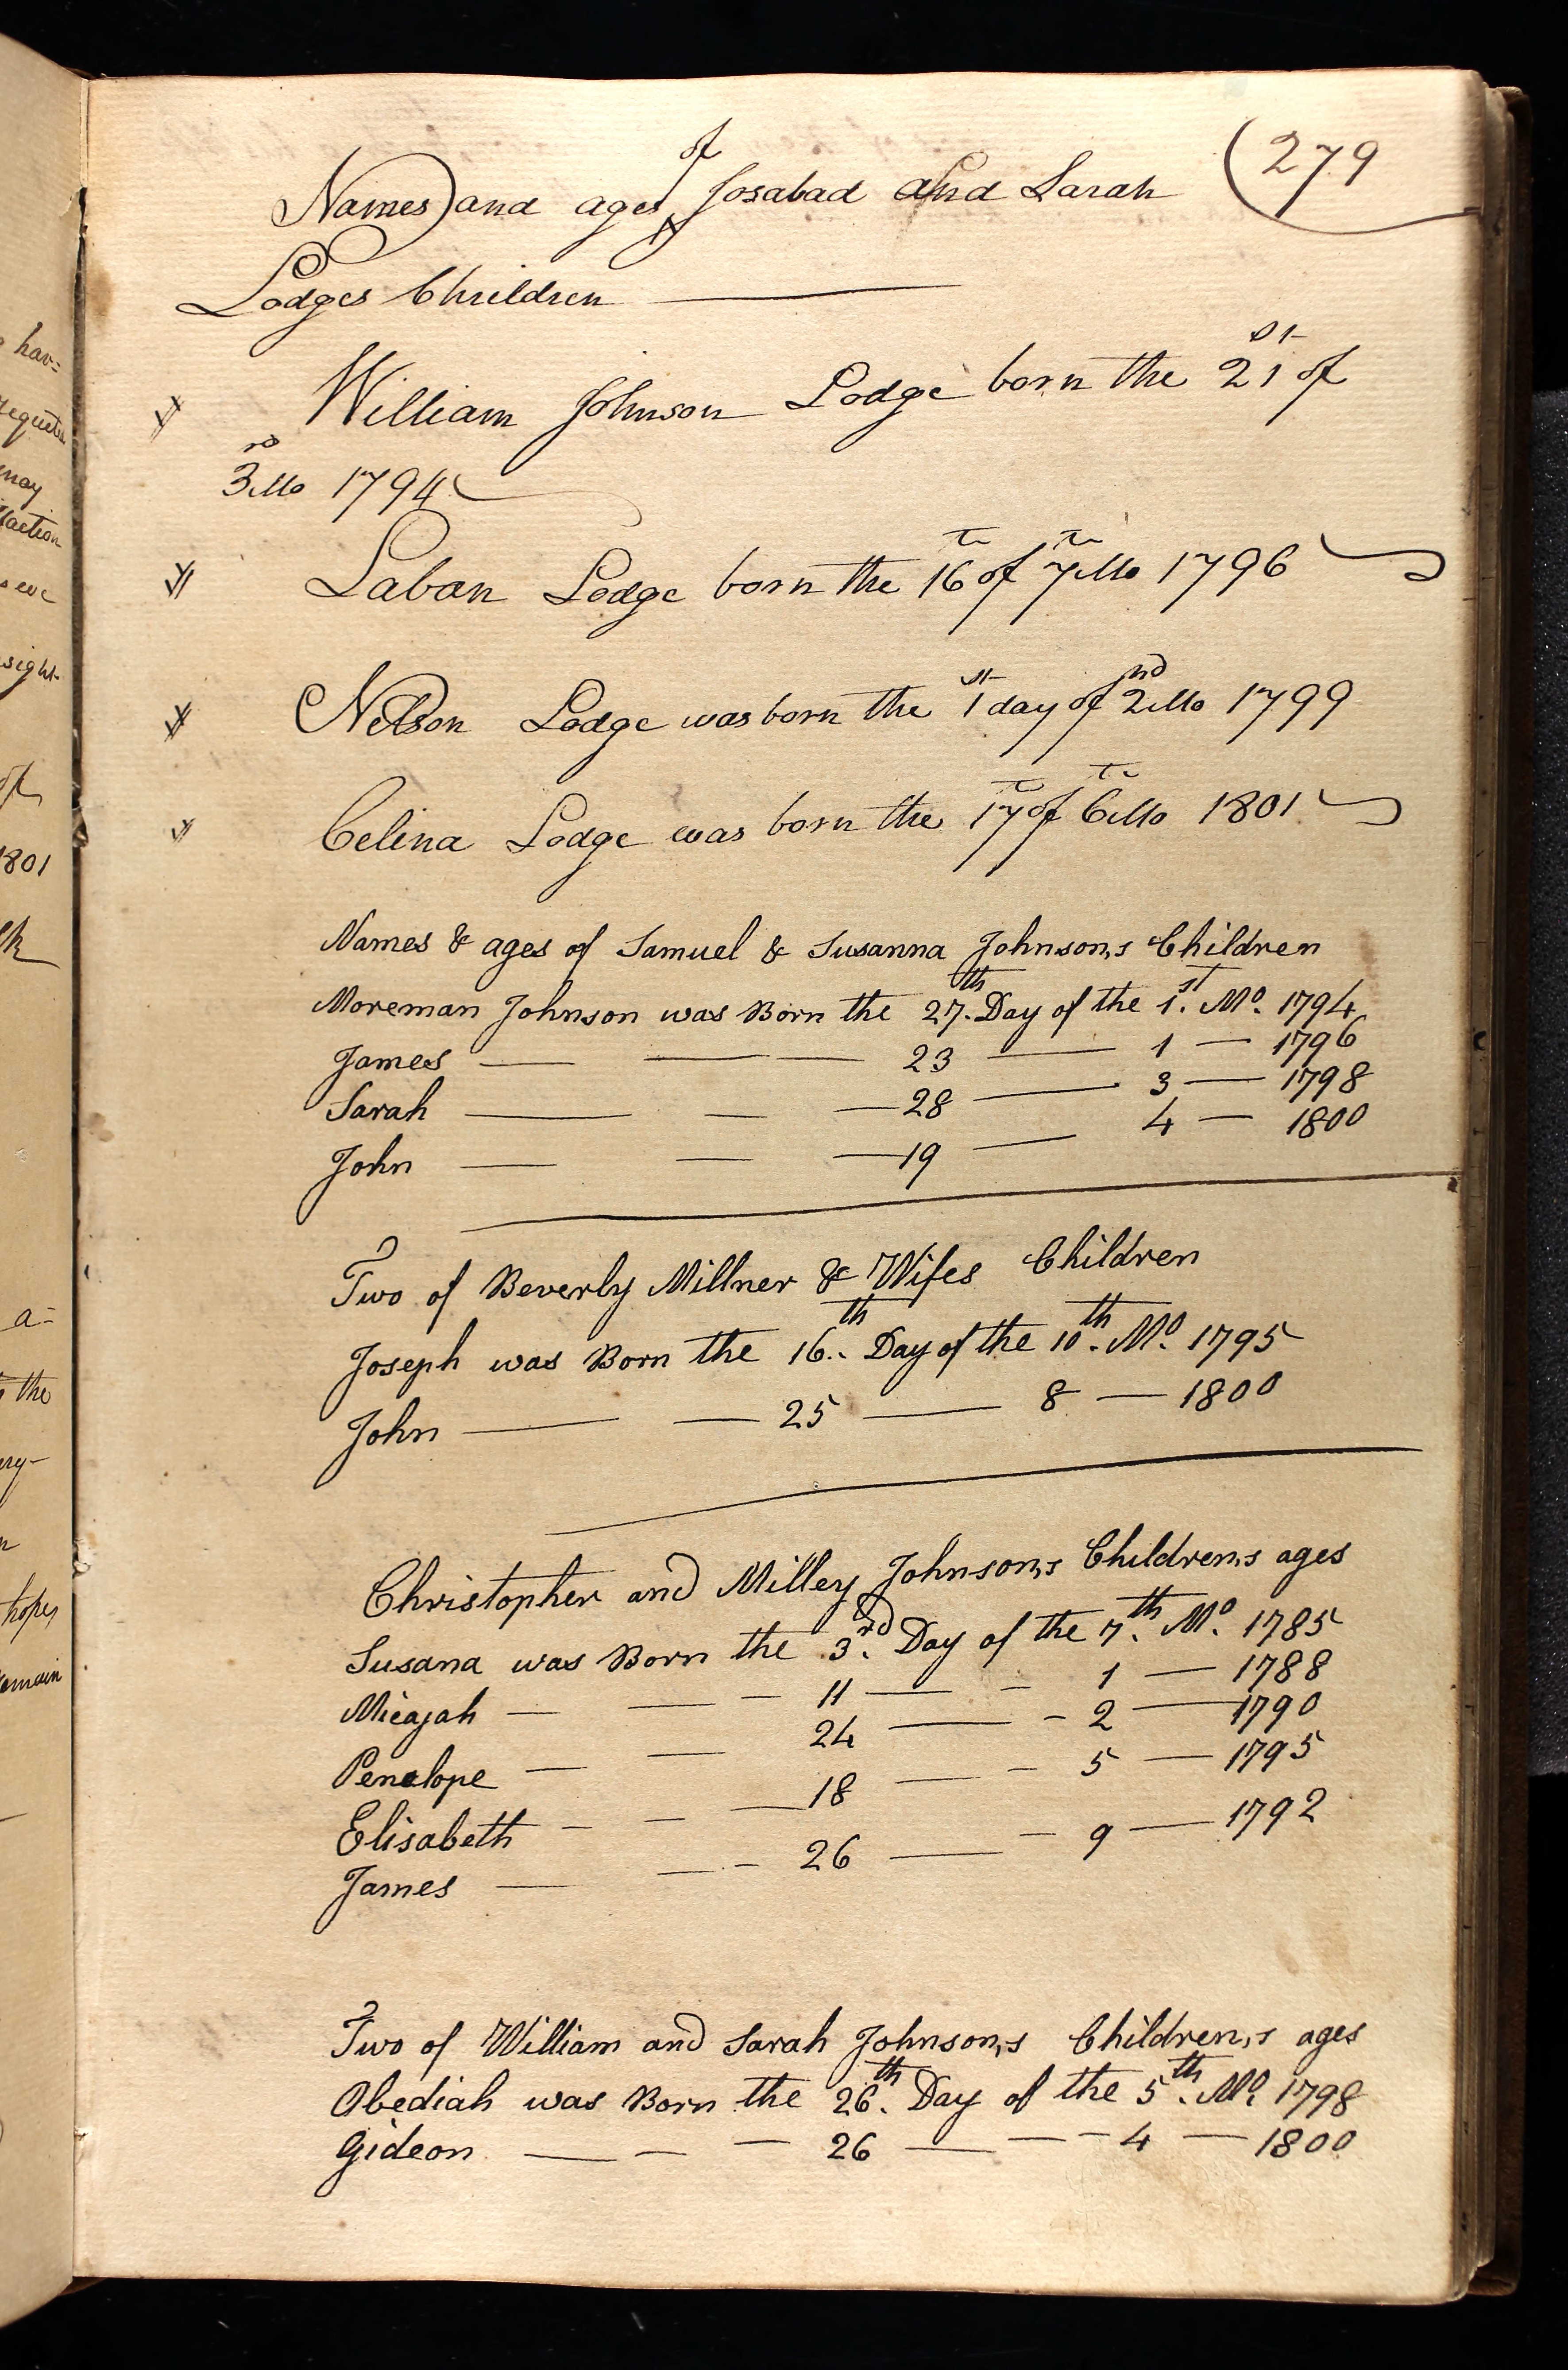 (279
Names and ages of Josabad and Sarah
Lodges Chrildren
William Johnson Lodge born the 21st of
3rd Mo 1794
Laban Lodge born the 16th of 7th Mo 1796
Nelson Lodge was born the 1st day of 2nd Mo 1799
Celina Lodge was born the 17th of 6th Mo 1801
Names & ages of Samuel & Susanna Johnson,s Children
Moreman Johnson was Born the 27.th Day of the 1.st Mo. 1794
James — — — 23 — 1 — 1796
Sarah — — — 28 — 3 — 1798
John — — — 19 — 4 — 1800
Two of Beverly Millner & Wifes Children
Joseph was Born the 16.th Day of the 10.th Mo. 1795
John — — 25 — 8 — 1800
Christopher and Milley Johnson,s Children,s ages
Susana was Born the 3.rd Day of the 7.th Mo. 1785
Micajah — — - 11 — - 1 — 1788
Penelope — — 24 — - 2 — 1790
Elisabeth - - — 18 — - 5 — 1795
James — — - 26 — - 9 — 1792
Two of William and Sarah Johnson,s Children,s ages
Obediah was Born the 26.th Day of the 5.th Mo. 1798
Gideon — — — 26 — — - 4 — 1800
har=
may
sight
1801
a=
the
hopes